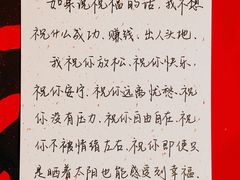 如果说祝福的话，我不想
祝什么成功、赚钱、出人头地，
我祝你放松，祝你快乐，
祝你安宁，祝你远离忧愁，祝
你没有压力，祝你自由自在，祝
你不被情绪左右，祝你即使只
是晒着太阳也能感受到幸福。